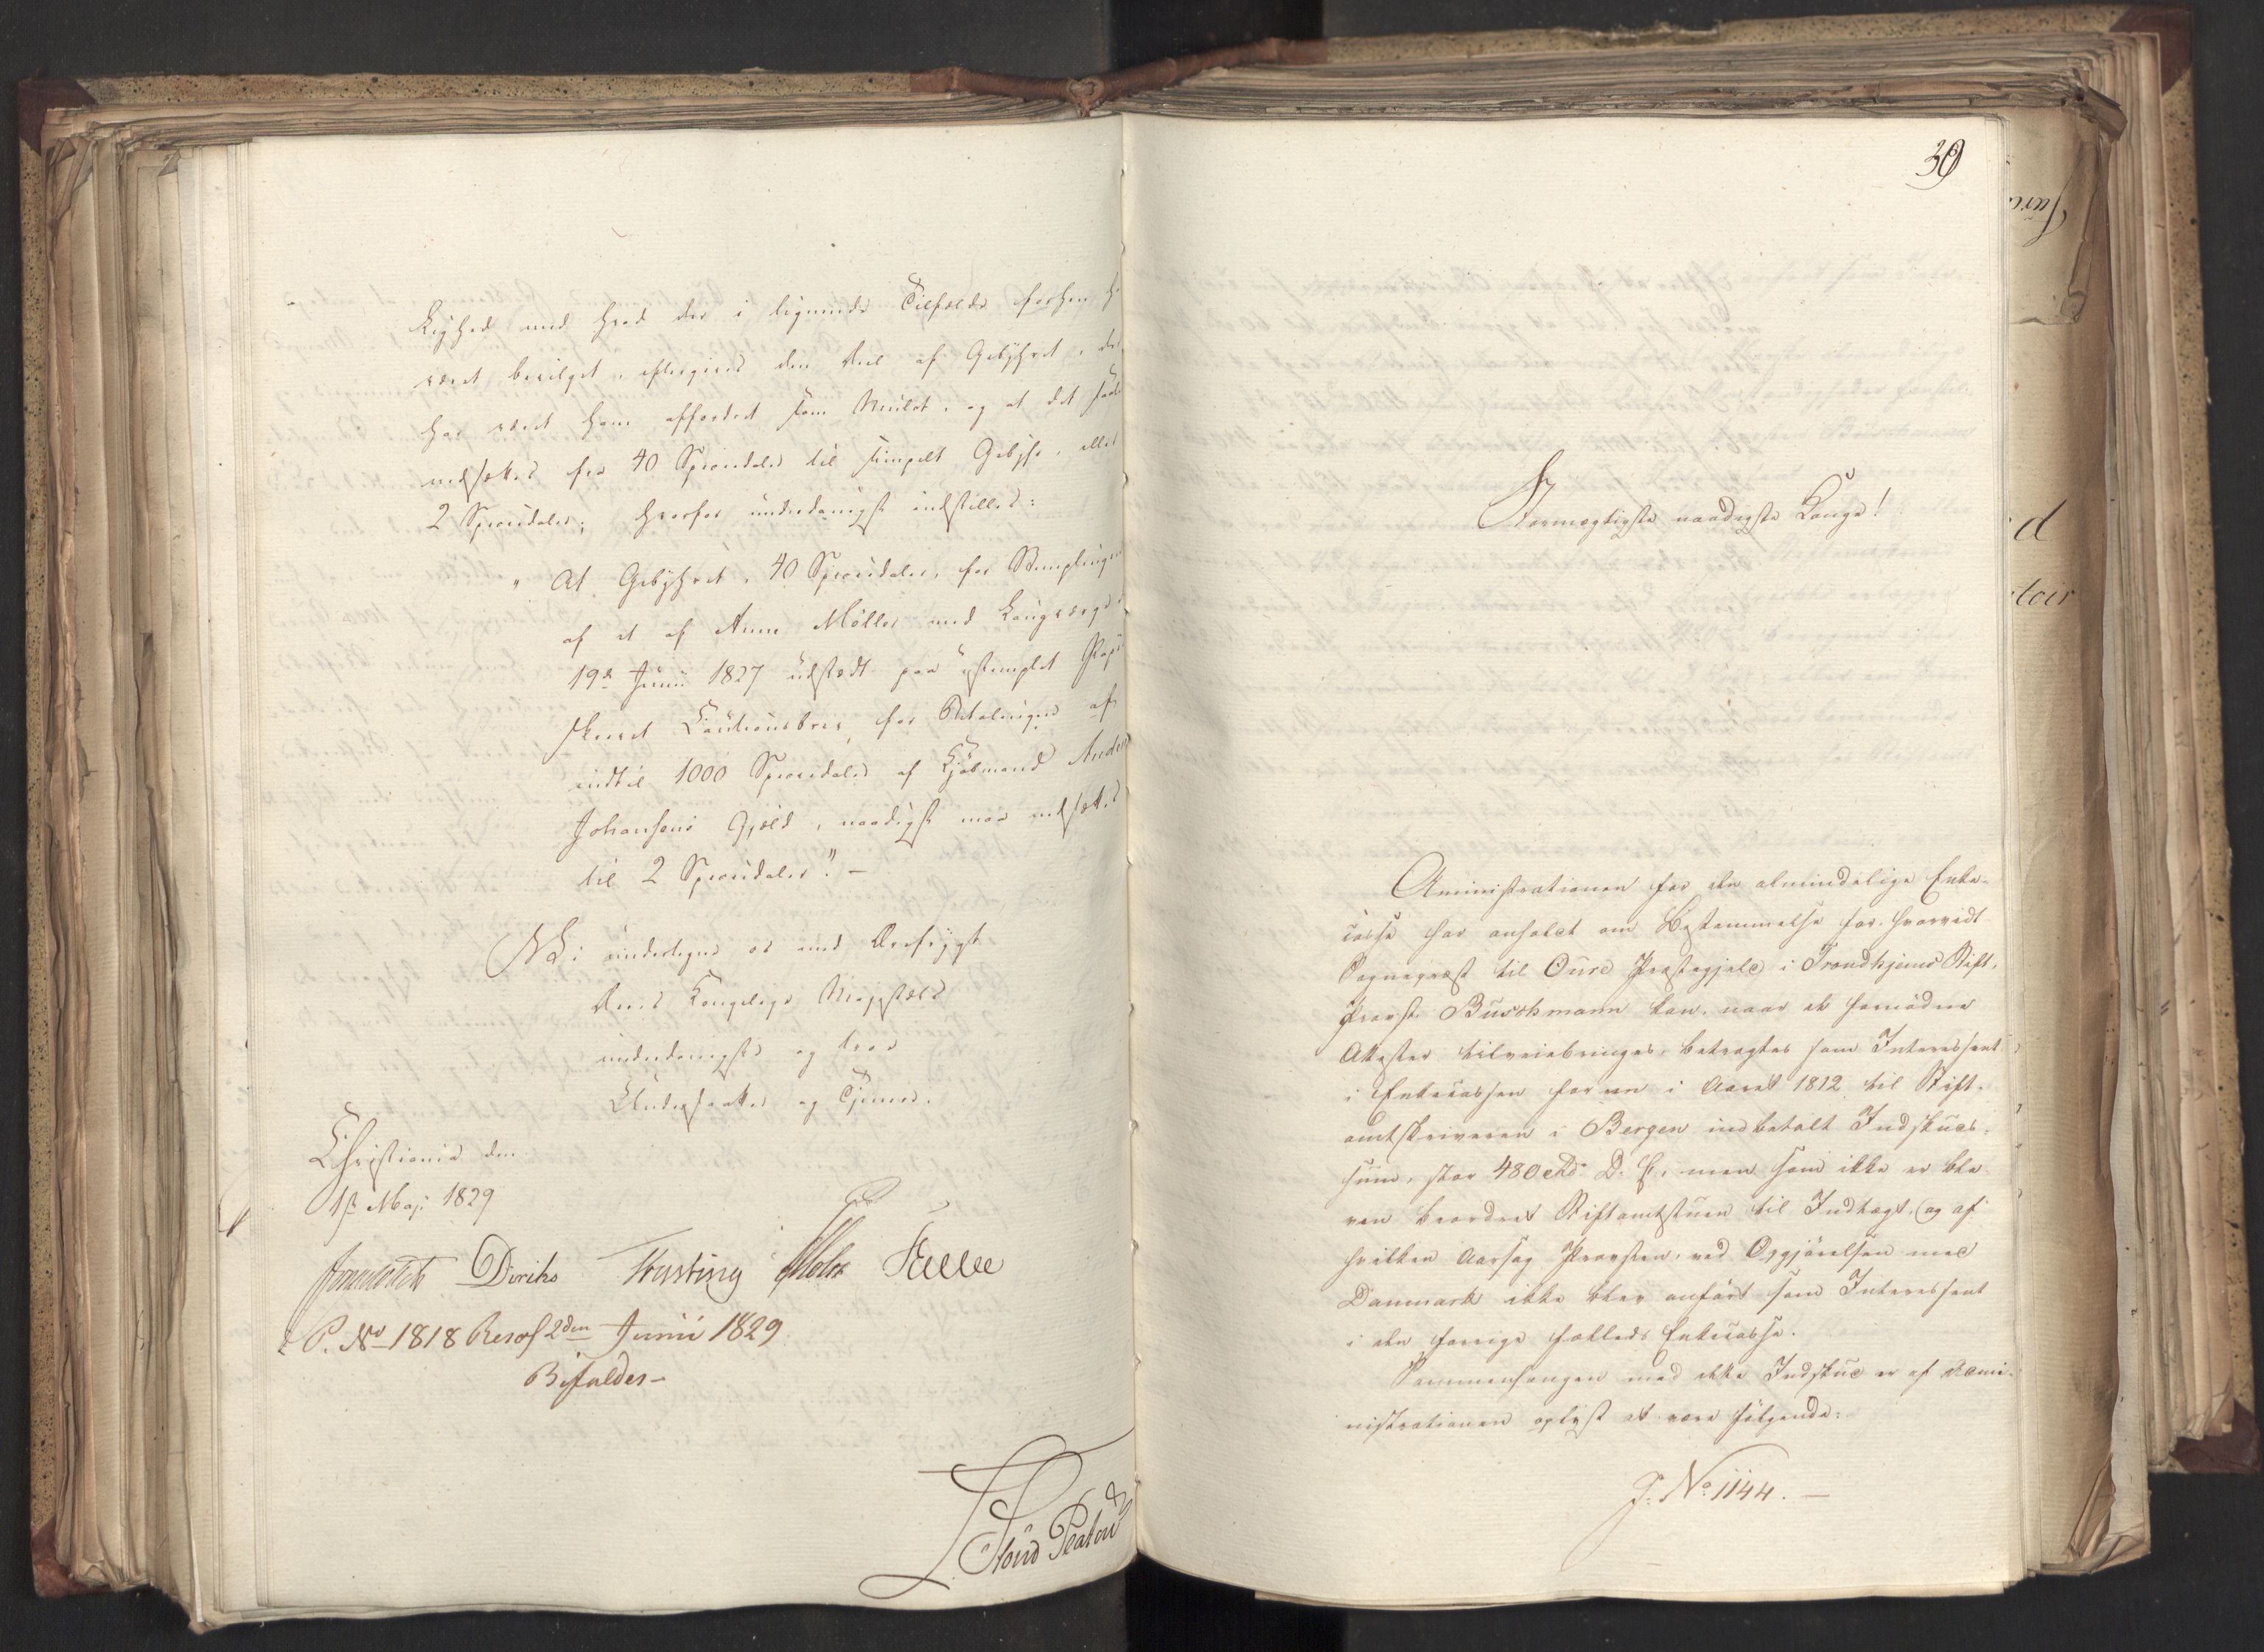 lighed med hvad der i lignende Tilfælde forhen
været bevilget, eftergives den Deel af Gebyhret, der
har været ham affordret som Mulct, og at det saale
nedsættes fra 40 Speciedaler til simpelt Gebyhr, eller
2 Speciedaler; hvorfor underdanigst indstilles:
"At Gebyhret, 40 Speciedaler, for Stemplingen
af et af Anne Møller med Laugværge
19de Junii 1827 udstædt paa ustemplet Papi
skrevet Cautionsbrev for Betalingen af
indtil 1000 Speciedaler af Kjøbmand Anders
Johansens Gjeld, naadigst maa nedsættes
til 2 Speciedaler." -
Vi undertegne os med Ærefrygt
Deres Kongelige Majestæts
underdanigste og troe
Undersaatter og Tjenere.
Christiania den
1ste Maji 1829
Diriks Krebting Holst
P. No 1818 Resol 2den Junii 1829
Bifaldes -
39
Stormægtigste naadigste Konge!
Aministrationen for den almindelige Enke-
casse har anholdt om Bestemmelse for, hvorvidt
Sognepræst til Oure Præstegjeld i Trondhjems Stift,
Provst Buschmann kan, naar de fornødne
Attester tilveiebringes, betragtes som Interessent
i Enkecassen for en i Aaret 1812 til Stift-
amtskriveren i Bergen indbetalt Indskuds-
sum, stor 480 Rd. D. C., men som ikke er ble-
ven beordret Stiftamtstuen til Indtægt, (og af
hvilken Aarsag Provsten, ved Opgjørelsen med
Danmark ikke blev anført som Interessent
i den forrige fælleds Enkecasse.
Sammenhængen med dette Indskud er af Admi-
nistrationen oplyst at være følgende:
J. No 1144. -